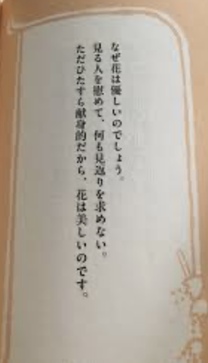 なぜ花は優しいのでしょう。
見る人を慰めて、何も見返りを求めない。
ただひたすら献身的だから、花は美しいのです。